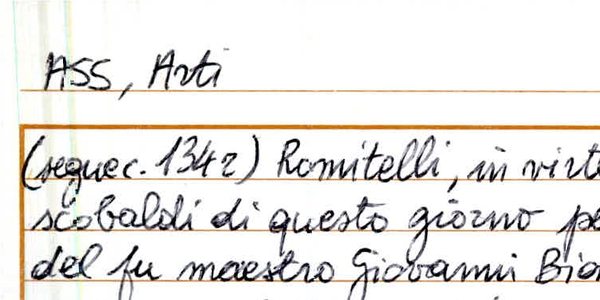 ASS, Arti
(segue c. 134r) Romitelli, in virt
scobaldi di questo giorno pe
del fu maestro Giovanni Bia